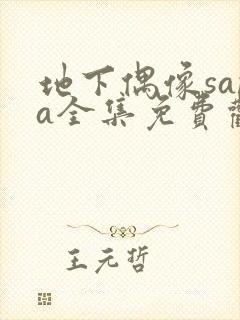 地下偶像sa
a全集免費
王元哲